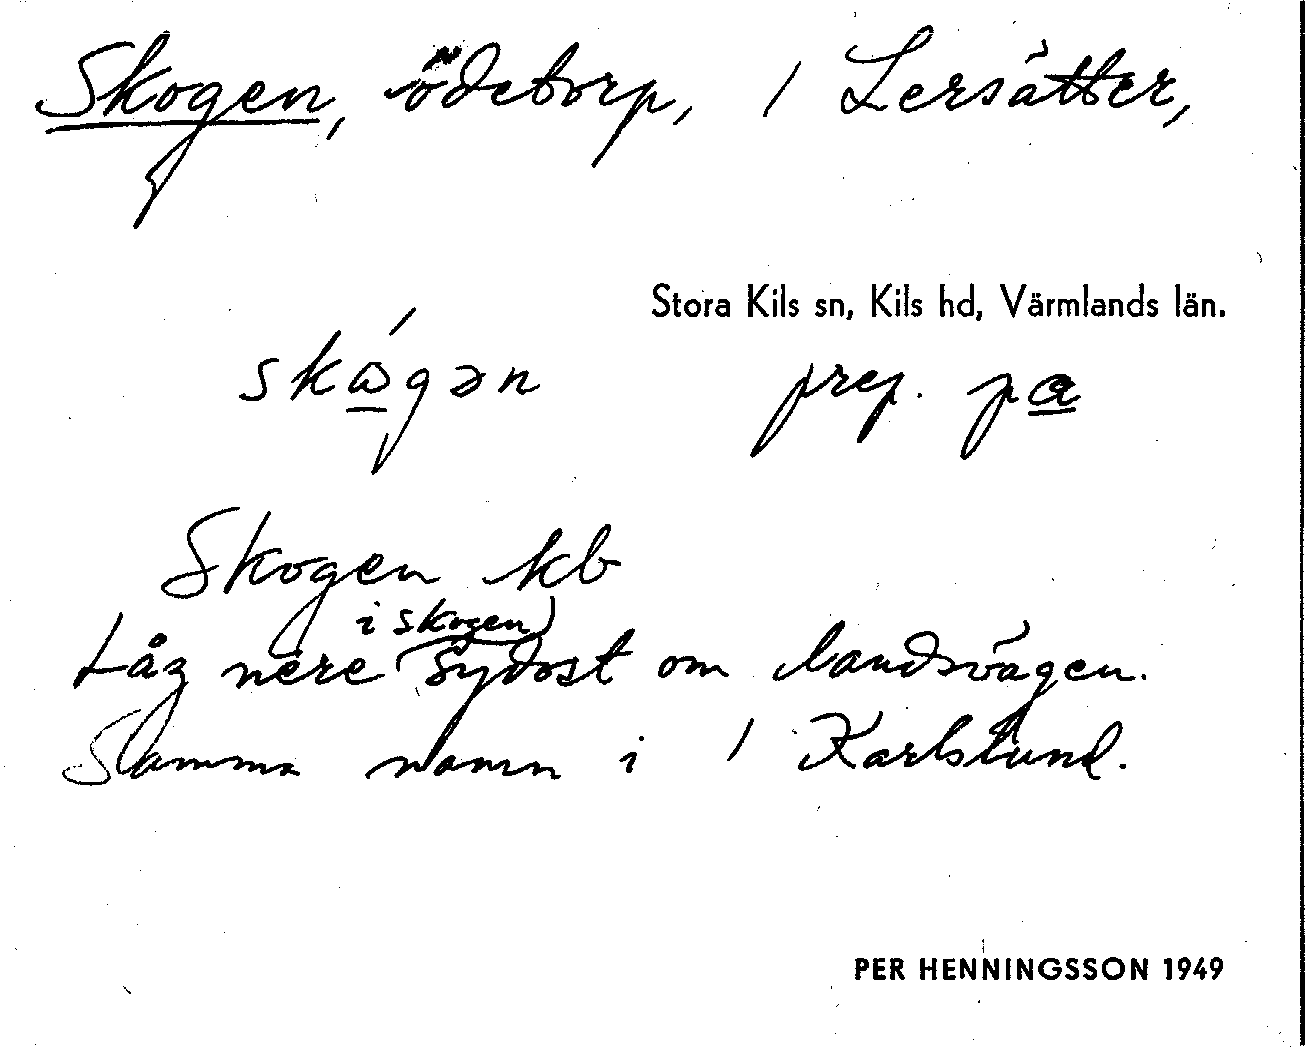 Skogen, ödetorp, / Lersätter,
Stora Kils sn, Kils hd, Värmlands län.
skώ̲gən prep. pa̲
Skogen kb
Låg nere i skogen sydost om landsvägen.
Samma namn i / Karlslund.
PER HENNINGSSON 1949